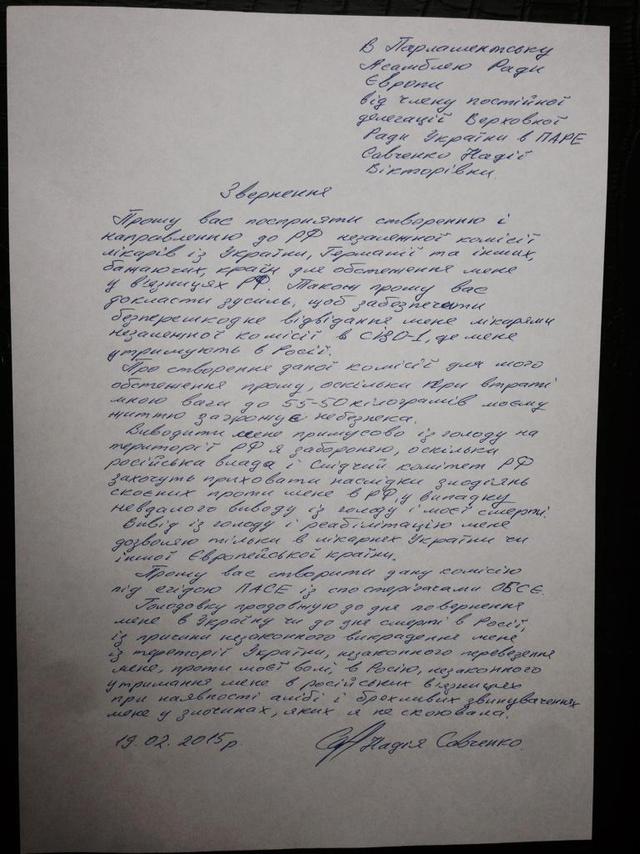 В Парламентську
Асамблею Ради
Європи
від члену постійної
делегації Верховної
Ради України в ПАРЕ
Савченко Надії
Вікторівни.
Звернення
Прошу вас посприяти створенню і
направленню до РФ незалежної комісії
лікарів із України, Германії та інших
бажаючих, країн для обстеження мене
у в'язницях РФ. Також прошу вас
докласти зусиль, щоб забезпечити
безперешкодне відвідання мене лікарями
незалежної комісії в СІЗО-1, де мене
утримують в Росії.
Про створення даної комісії для мого
обстеження прошу, оскільки при втраті
мною ваги до 55-50 кілограмів моєму
життю загрожує небезпека.
Виводити мене примусово із голоду на
території РФ я забороняю, оскільки
російська влада і Слідчий комітет РФ
захочуть приховати наслідки злодіянь
скоєних проти мене в РФ, у випадку
невдалого виводу із голоду і моєї смерті.
Вивід із голоду і реабілітацію мене
дозволяю тільки в лікарнях України чи
іншої Європейської країни.
Прошу вас створити дану комісію
під егідою ПАСЕ із спостерігачами ОБСЄ.
Голодовку продовжую до дня повернення
мене в Україну чи до дня смерті в Росії,
із причини незаконного викрадення мене
із території України, незаконного перевезення
мене, проти моєї волі, в Росію, незаконного
утримання мене в російських в'язницях
при наявності алібі і брехливих звинуваченнях
мене у злочинах, яких я не скоювала.
19.02.2015р. Надія Савченко.